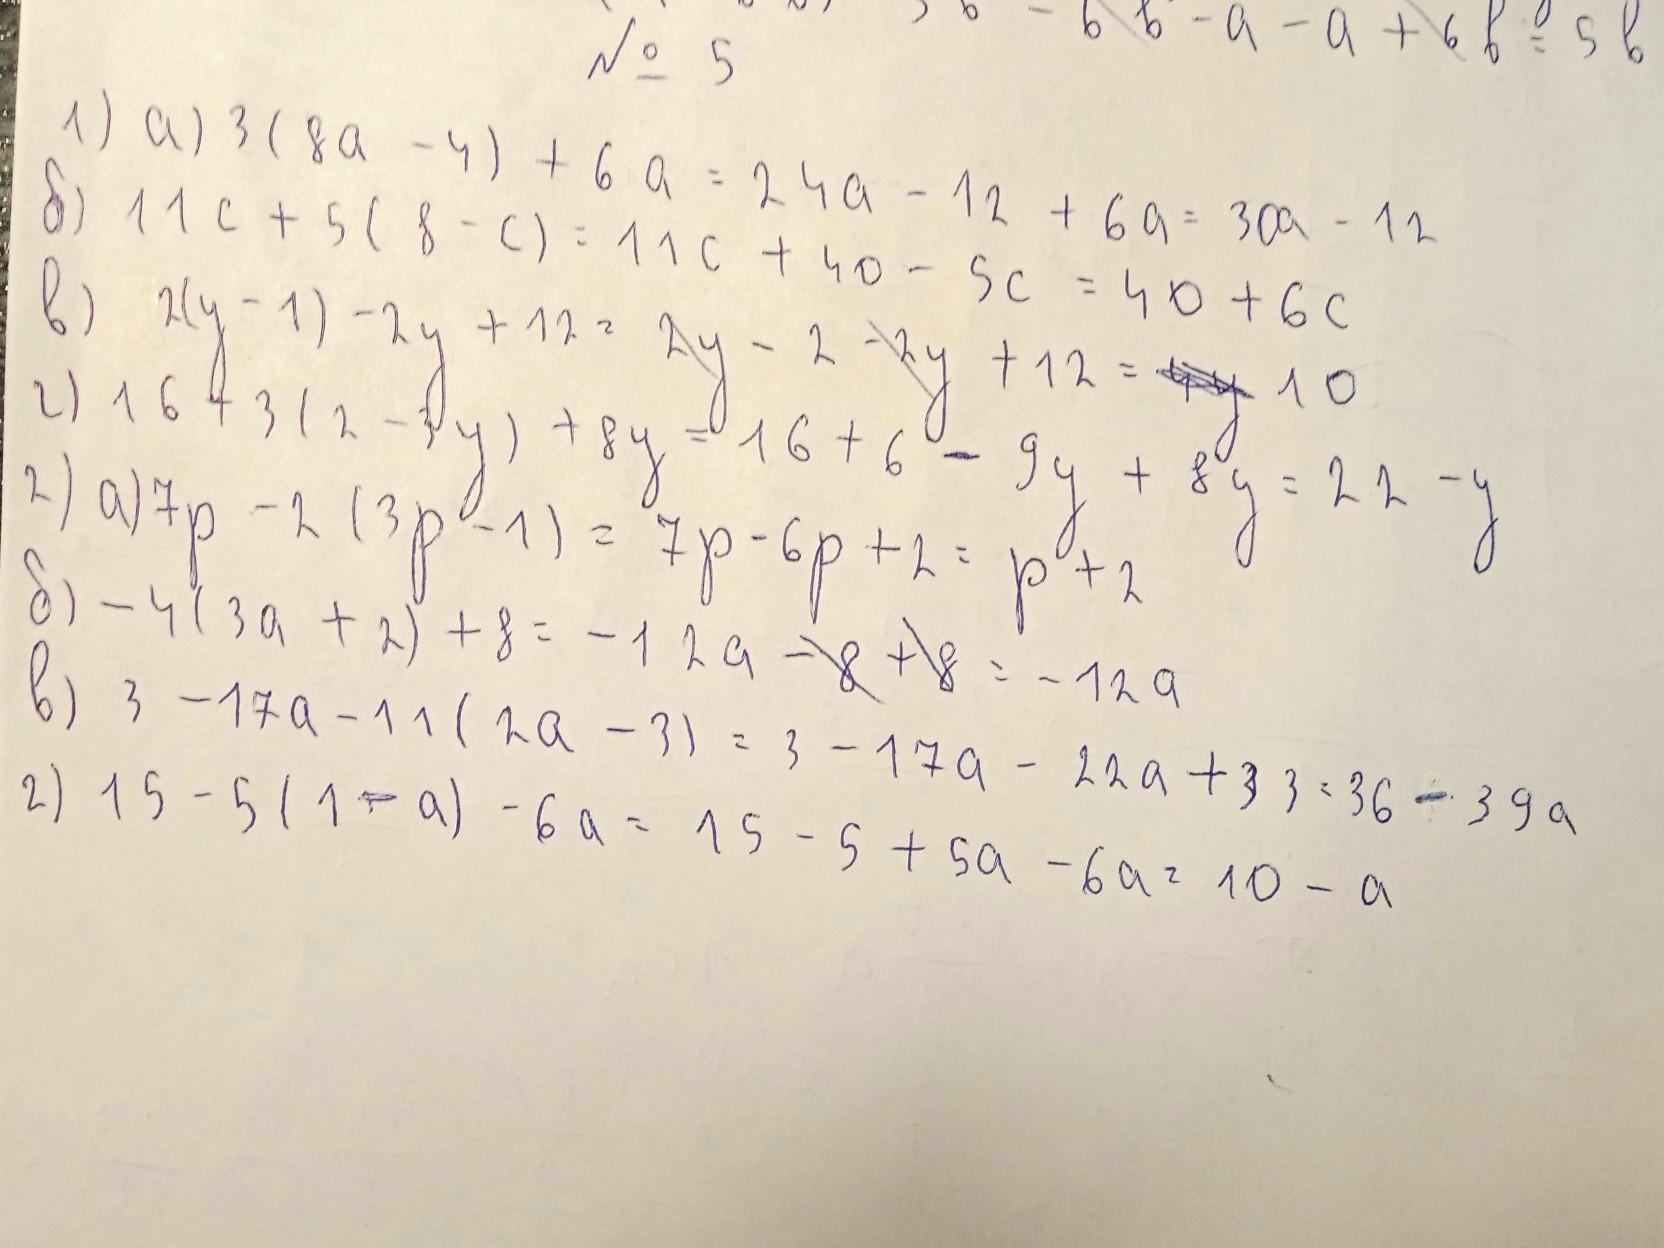 5b - 6b - a - a + 6b = 5b
№ 5
1) а) 3(8a - 4) + 6a = 24a - 12 + 6a = 30a - 12
б) 11c + 5(8 - c) = 11c + 40 - 5c = 40 + 6c
в) 2(y - 1) - 2y + 12 = 2y - 2 - 2y + 12 = 10
г) 16 + 3(2 - 3y) + 8y = 16 + 6 - 9y + 8y = 22 - y
2) а) 7p - 2(3p - 1) = 7p - 6p + 2 = p + 2
б) -4(3a + 2) + 8 = -12a - 8 + 8 = -12a
в) 3 - 17a - 11(2a - 3) = 3 - 17a - 22a + 33 = 36 - 39a
г) 15 - 5(1 - a) - 6a = 15 - 5 + 5a - 6a = 10 - a